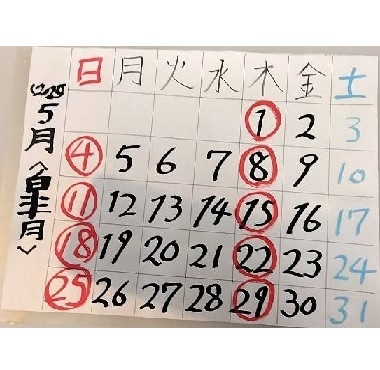 日 月 火 水 木 金 土
1 2 3
4 5 6 7 8 9 10
11 12 13 14 15 16 17
18 19 20 21 22 23 24
25 26 27 28 29 30 31
5月〈皐月〉